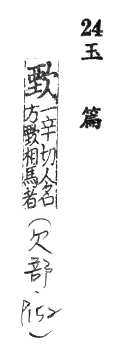 24 玉篇
歅一辛切人名
方歅相馬者
(欠部·P152)